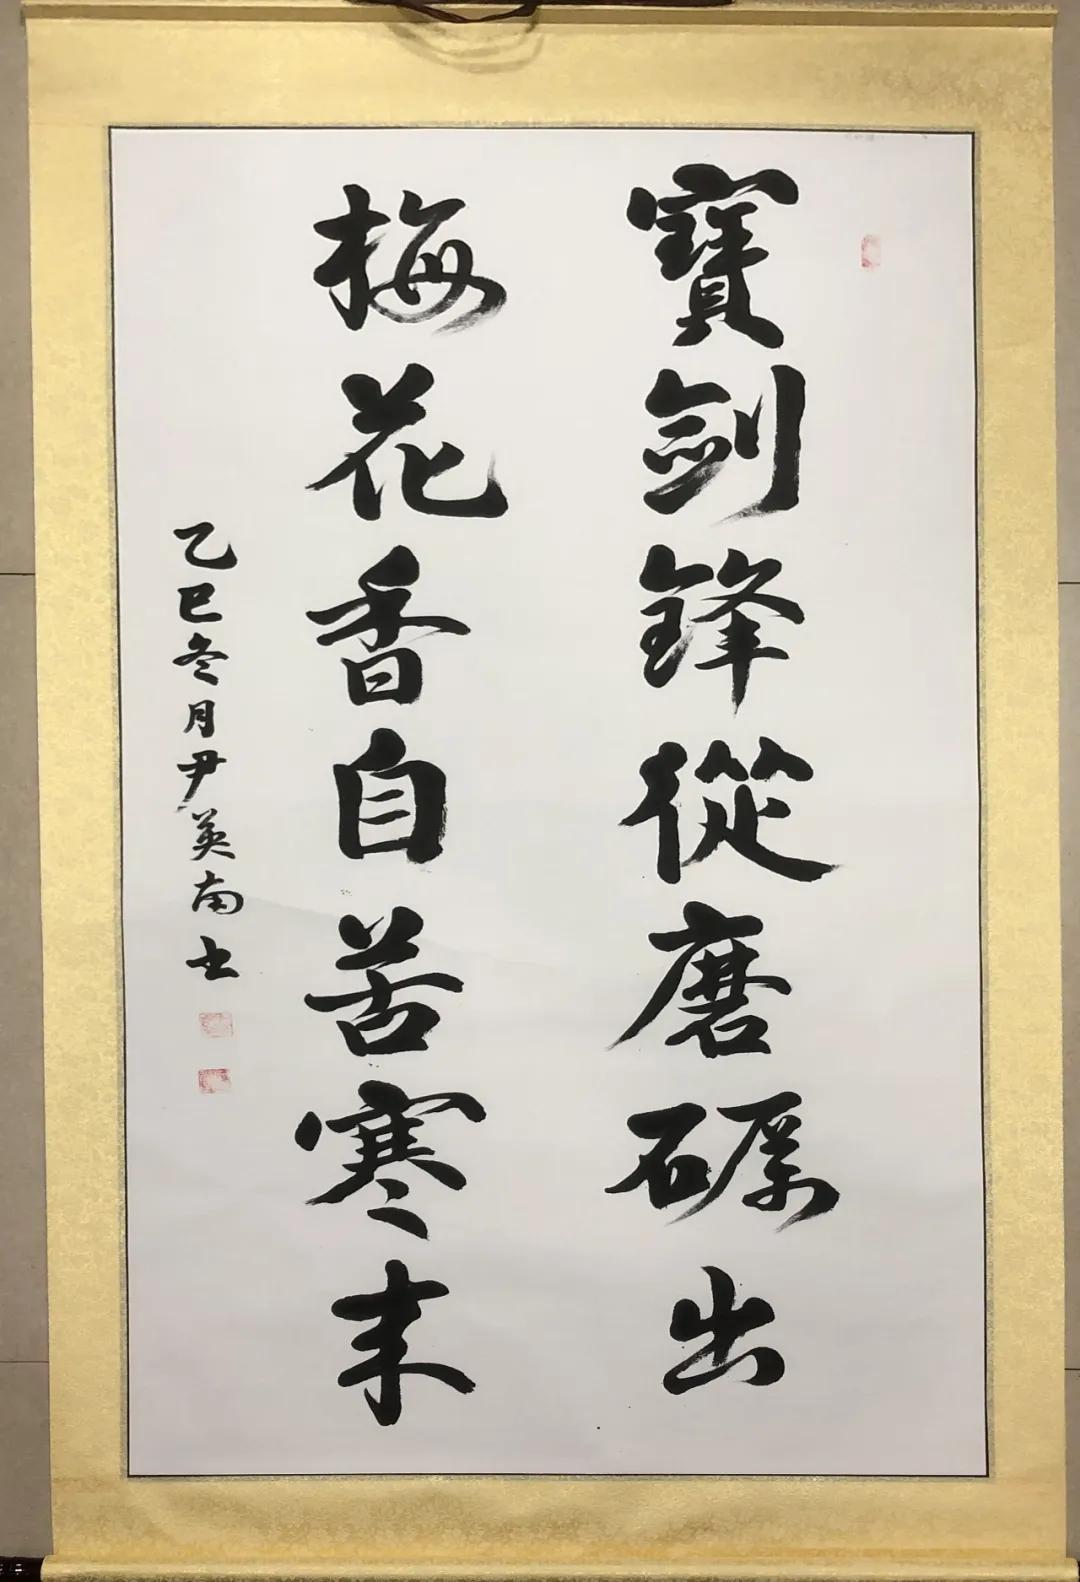 寶劍鋒從磨礪出
梅花香自苦寒来
乙巳冬月尹英南书